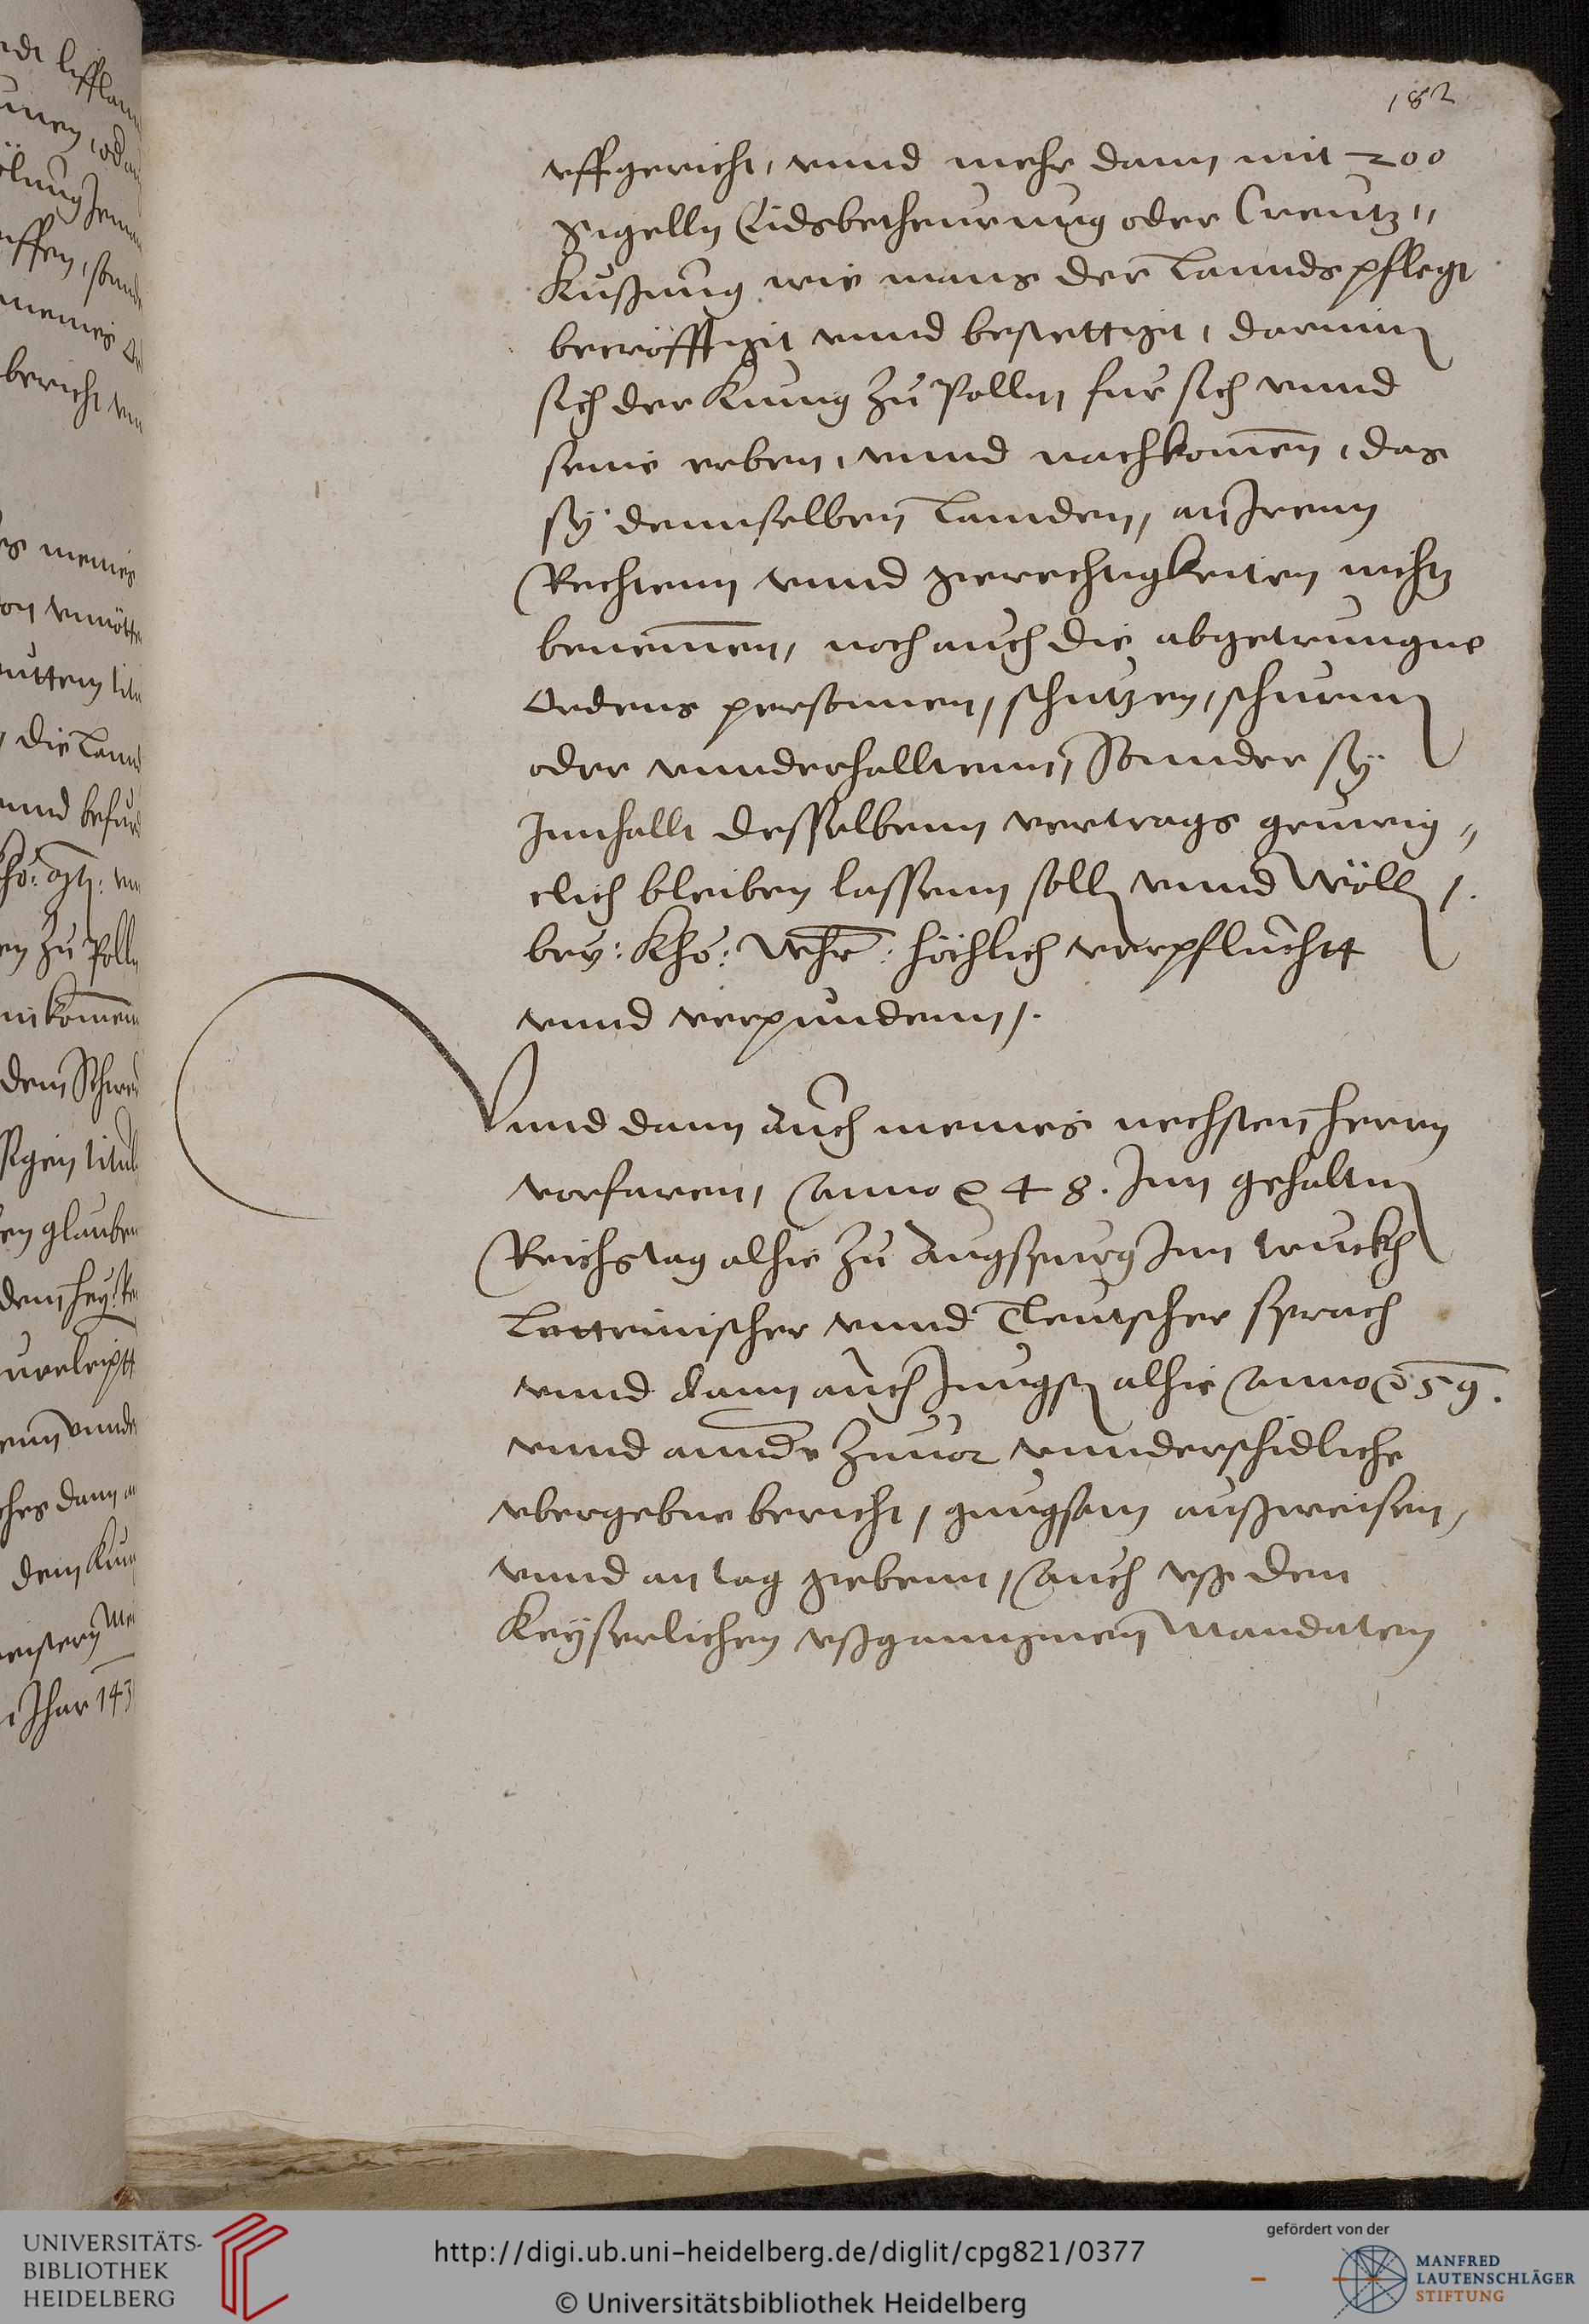 182
vffgericht, vnnd mehr dann mit 200
Sigelln Eidsbetheurung oder Creutz„
Kußung wie mans der Lannds pflegt
becröfftigit vnnd bestettigit, darinn
sich der Kunig zu Polln fur sich vnnd
seine erben, vnnd nachkomen, das
sy dennselben Lannden, an Irenn
Rechtenn vnnd gerechtigkeiten nichtz
benemen, noch auch die abgetrungne
Ordens personnen, schutzen, schurm
oder vnnderhalltenn, Sonnder sy
Innhallt desselbenn vertrags geruwig„
clich bleiben lassenn soll vnnd wöll,.
bey: Khö: Whr: höchlich verpflucht
vnnd verpundenn,.
Vnnd dann auch meines nechsten herrn
vorfaren, Anno 48. Inn gehaltnn
Reichstag alhie zu Augspurg Inn truckh
Latteinischer vnnd Teutscher sprach
vnnd dann auch Jungst alhie Anno 59.
vnnd annder zuuor vnnderschidliche
vbergebne bericht, gnugsam außweisen,
vnnd an tag gebenn, Auch vß den
Keyserlichen vßganngnen Mandaten
UNIVERSITÄTS-
BIBLIOTHEK
HEIDELBERG
http://digi.ub.uni-heidelberg.de/diglit/cpg821/0377
© Universitätsbibliothek Heidelberg
gefördert von der
MANFRED
LAUTENSCHLÄGER
STIFTUNG